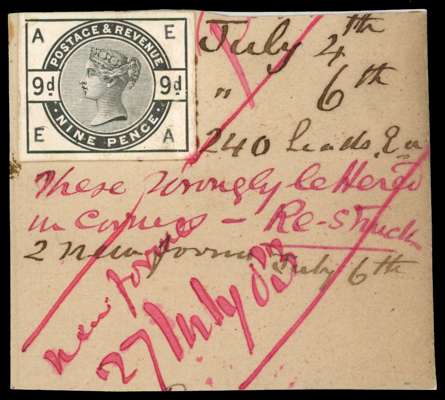 A E
POSTAGE & REVENUE
9d 9d
NINE PENCE
E A
July 4th
" 6th
240 Leads. Ea
These wrongly lettered
in corners — Re-struck
2 new forms July 6th
new forms
27 July 83